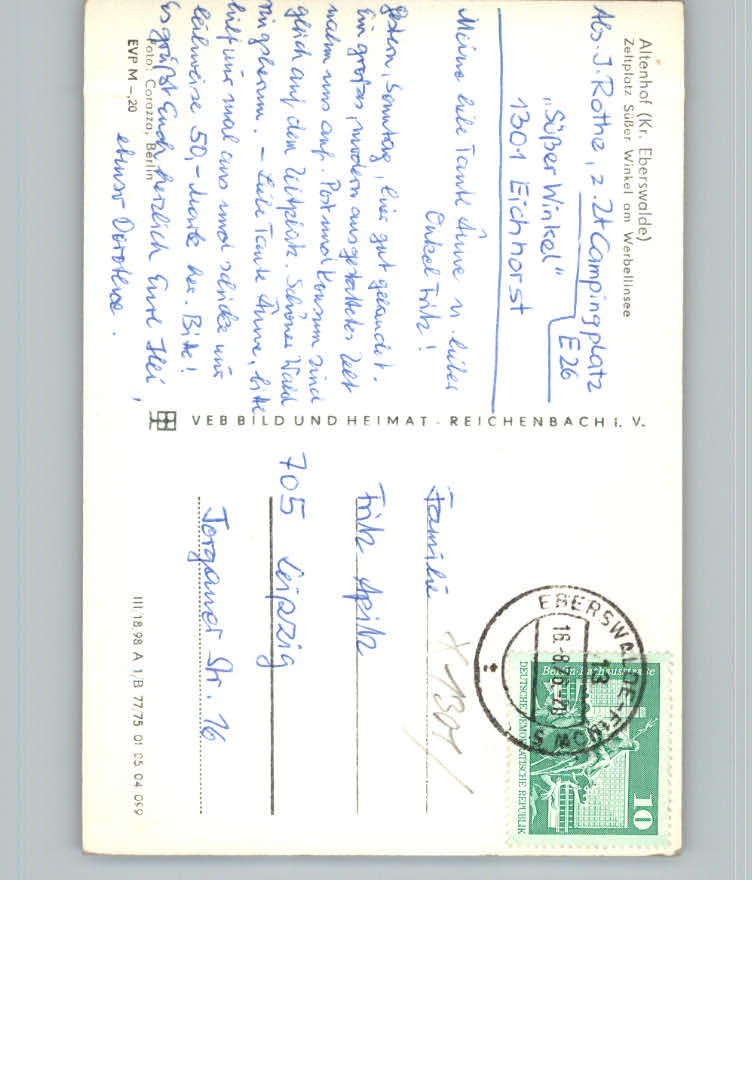 Altenhof (Kr. Eberswalde)
Zeltplatz Süßer Winkel am Werbellinsee
Abs. J. Rothe, z. Zt Campingplatz
„Süßer Winkel" E 26
1301 Eichhorst
Meine liebe Tante Änne u. lieber
Onkel Fritz!
Gestern, Sonntag, hier gut gelandet.
Ein großes, modern ausgestattetes Zelt
nahm uns auf. Post und Konsum sind
gleich auf dem Zeltplatz. Schöner Wald
ringsherum. – Liebe Tante Änne, bitte
hilf uns mal aus und schicke uns
leihweise 50,- Mark her. Bitte!
Es grüßt Euch herzlich Eure
ebenso Dorothea.
Foto: Corazza, Berlin
EVP M –,20
VEB BILD UND HEIMAT · REICHENBACH i. V.
Familie
Fritz Apitz
705 Leipzig
Torgauer Str. 16
III 18 98 A 1/B 77/75 01 05 04 099
1301
EBERSWALDE-FINOW 5
13
16.-8.
Berlin-Rathausstrasse
DEUTSCHE DEMOKRATISCHE REPUBLIK
10